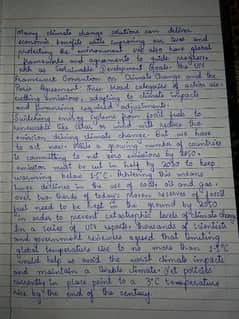 Many climate change solutions can deliver
economic benefits while improving our lives and
protecting the environment. We also have global
frameworks and agreements to guide progress,
such as Sustainable Development Goals, the UN
Framework Convention on Climate Change and the
Paris Agreement. Three broad categories of action are:
cutting emissions, adapting to climate impacts
and financing required adjustments.
Switching energy systems from fossil fuels to
renewables like solar or wind will reduce the
emissions driving climate change. But we have
to act now. While a growing number of countries
is committing to net zero emissions by 2050,
emissions must be cut in half by 2030 to keep
warming below 1.5°C. Achieving this means
huge declines in the use of coal, oil and gas:
over two thirds of today's proven reserves of fossil
fuels need to be kept in the ground by 2050
in order to prevent catastrophic levels of climate change.
In a series of UN reports, thousands of scientists
and government reviewers agreed that limiting
global temperature rise to no more than 1.5°C
would help us avoid the worst climate impacts
and maintain a livable climate. Yet policies
currently in place point to a 3°C temperature
rise by the end of the century.